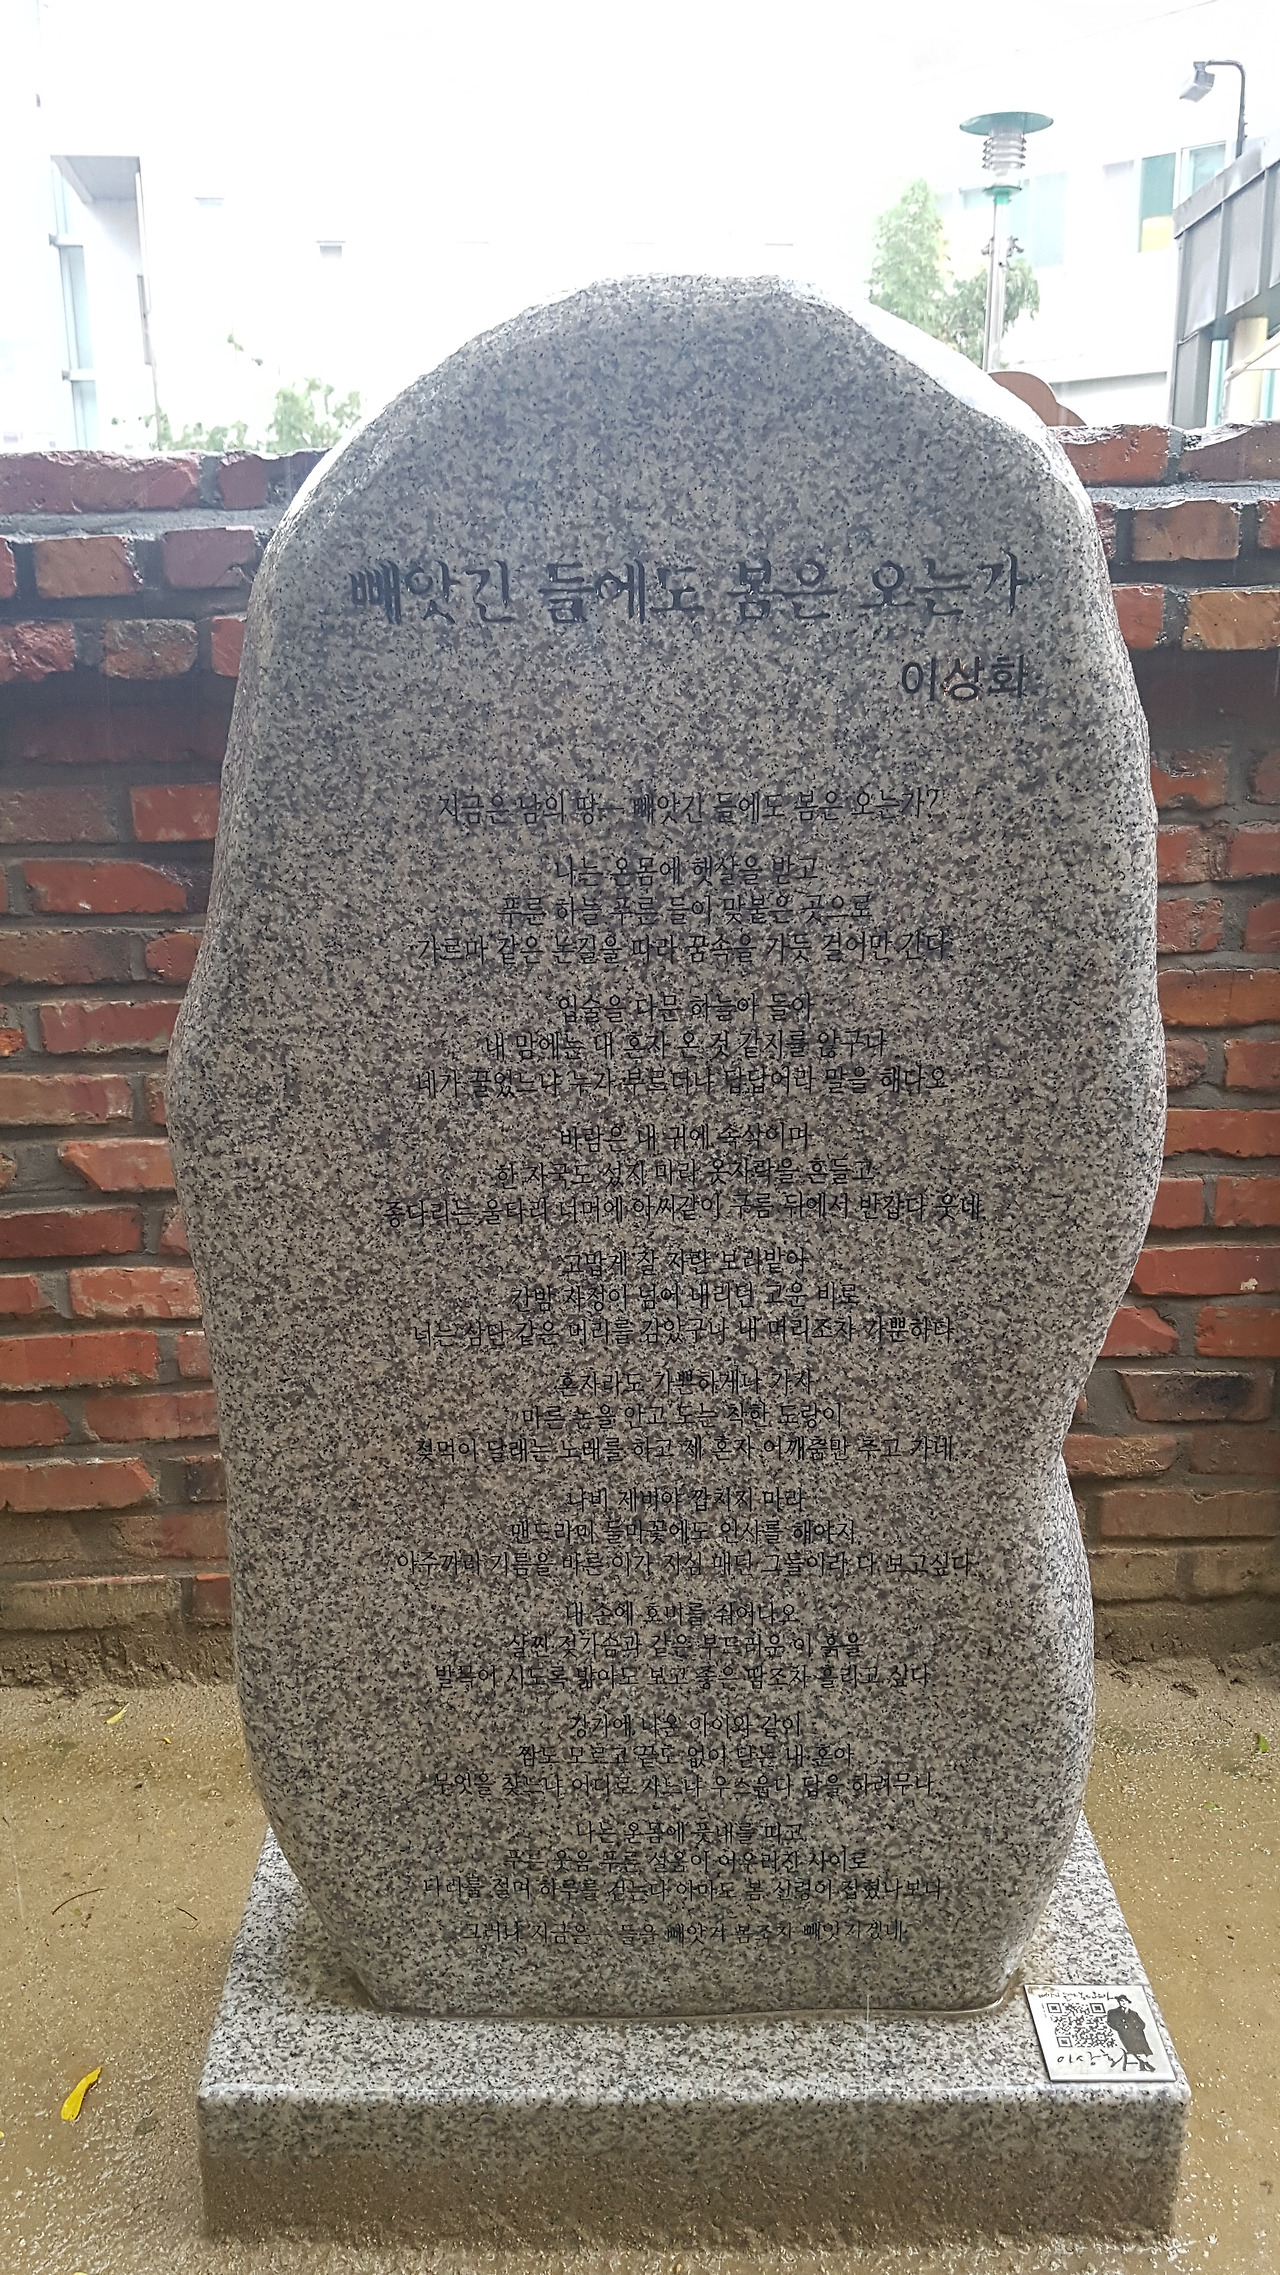 빼앗긴 들에도 봄은 오는가
이상화
지금은 남의 땅— 빼앗긴 들에도 봄은 오는가?
나는 온몸에 햇살을 받고
푸른 하늘 푸른 들이 맞붙은 곳으로
가르마 같은 논길을 따라 꿈속을 가듯 걸어만 간다.
입술을 다문 하늘아 들아
내 맘에는 내 혼자 온 것 같지를 않구나
네가 끌었느냐 누가 부르더냐 답답어라 말을 해다오
바람은 내 귀에 속삭이며
한 자국도 섰지 마라 옷자락을 흔들고
종다리는 울타리 너머에 아씨같이 구름 뒤에서 반갑다 웃네
고맙게 잘 자란 보리밭아
간밤 자정이 넘어 내리던 고운 비로
너는 삼단 같은 머리를 감았구나 내 머리조차 가뿐하다
혼자라도 가쁜하게나 가자
마른 논을 안고 도는 착한 도랑이
젖먹이 달래는 노래를 하고 제 혼자 어깨춤만 추고 가네
나비 제비야 깝치지 마라
맨드라미 들마꽃에도 인사를 해야지
아주까리 기름을 바른 이가 지심 매던 그들이라 다 보고싶다
내 손에 호미를 쥐여다오
살찐 젖가슴과 같은 부드러운 이 흙을
발목이 시도록 밟아도 보고 좋은 땀조차 흘리고 싶다
강가에 나온 아이와 같이
짬도 모르고 끝도 없이 닫는 내 혼아
무엇을 찾느냐 어디로 가느냐 우스웁다 답을 하려무나
나는 온몸에 풋내를 띠고
푸른 웃음 푸른 설움이 어우러진 사이로
다리를 절며 하루를 걷는다 아마도 봄 신령이 잡혔나보다
그러나 지금은— 들을 빼앗겨 봄조차 빼앗기겠네